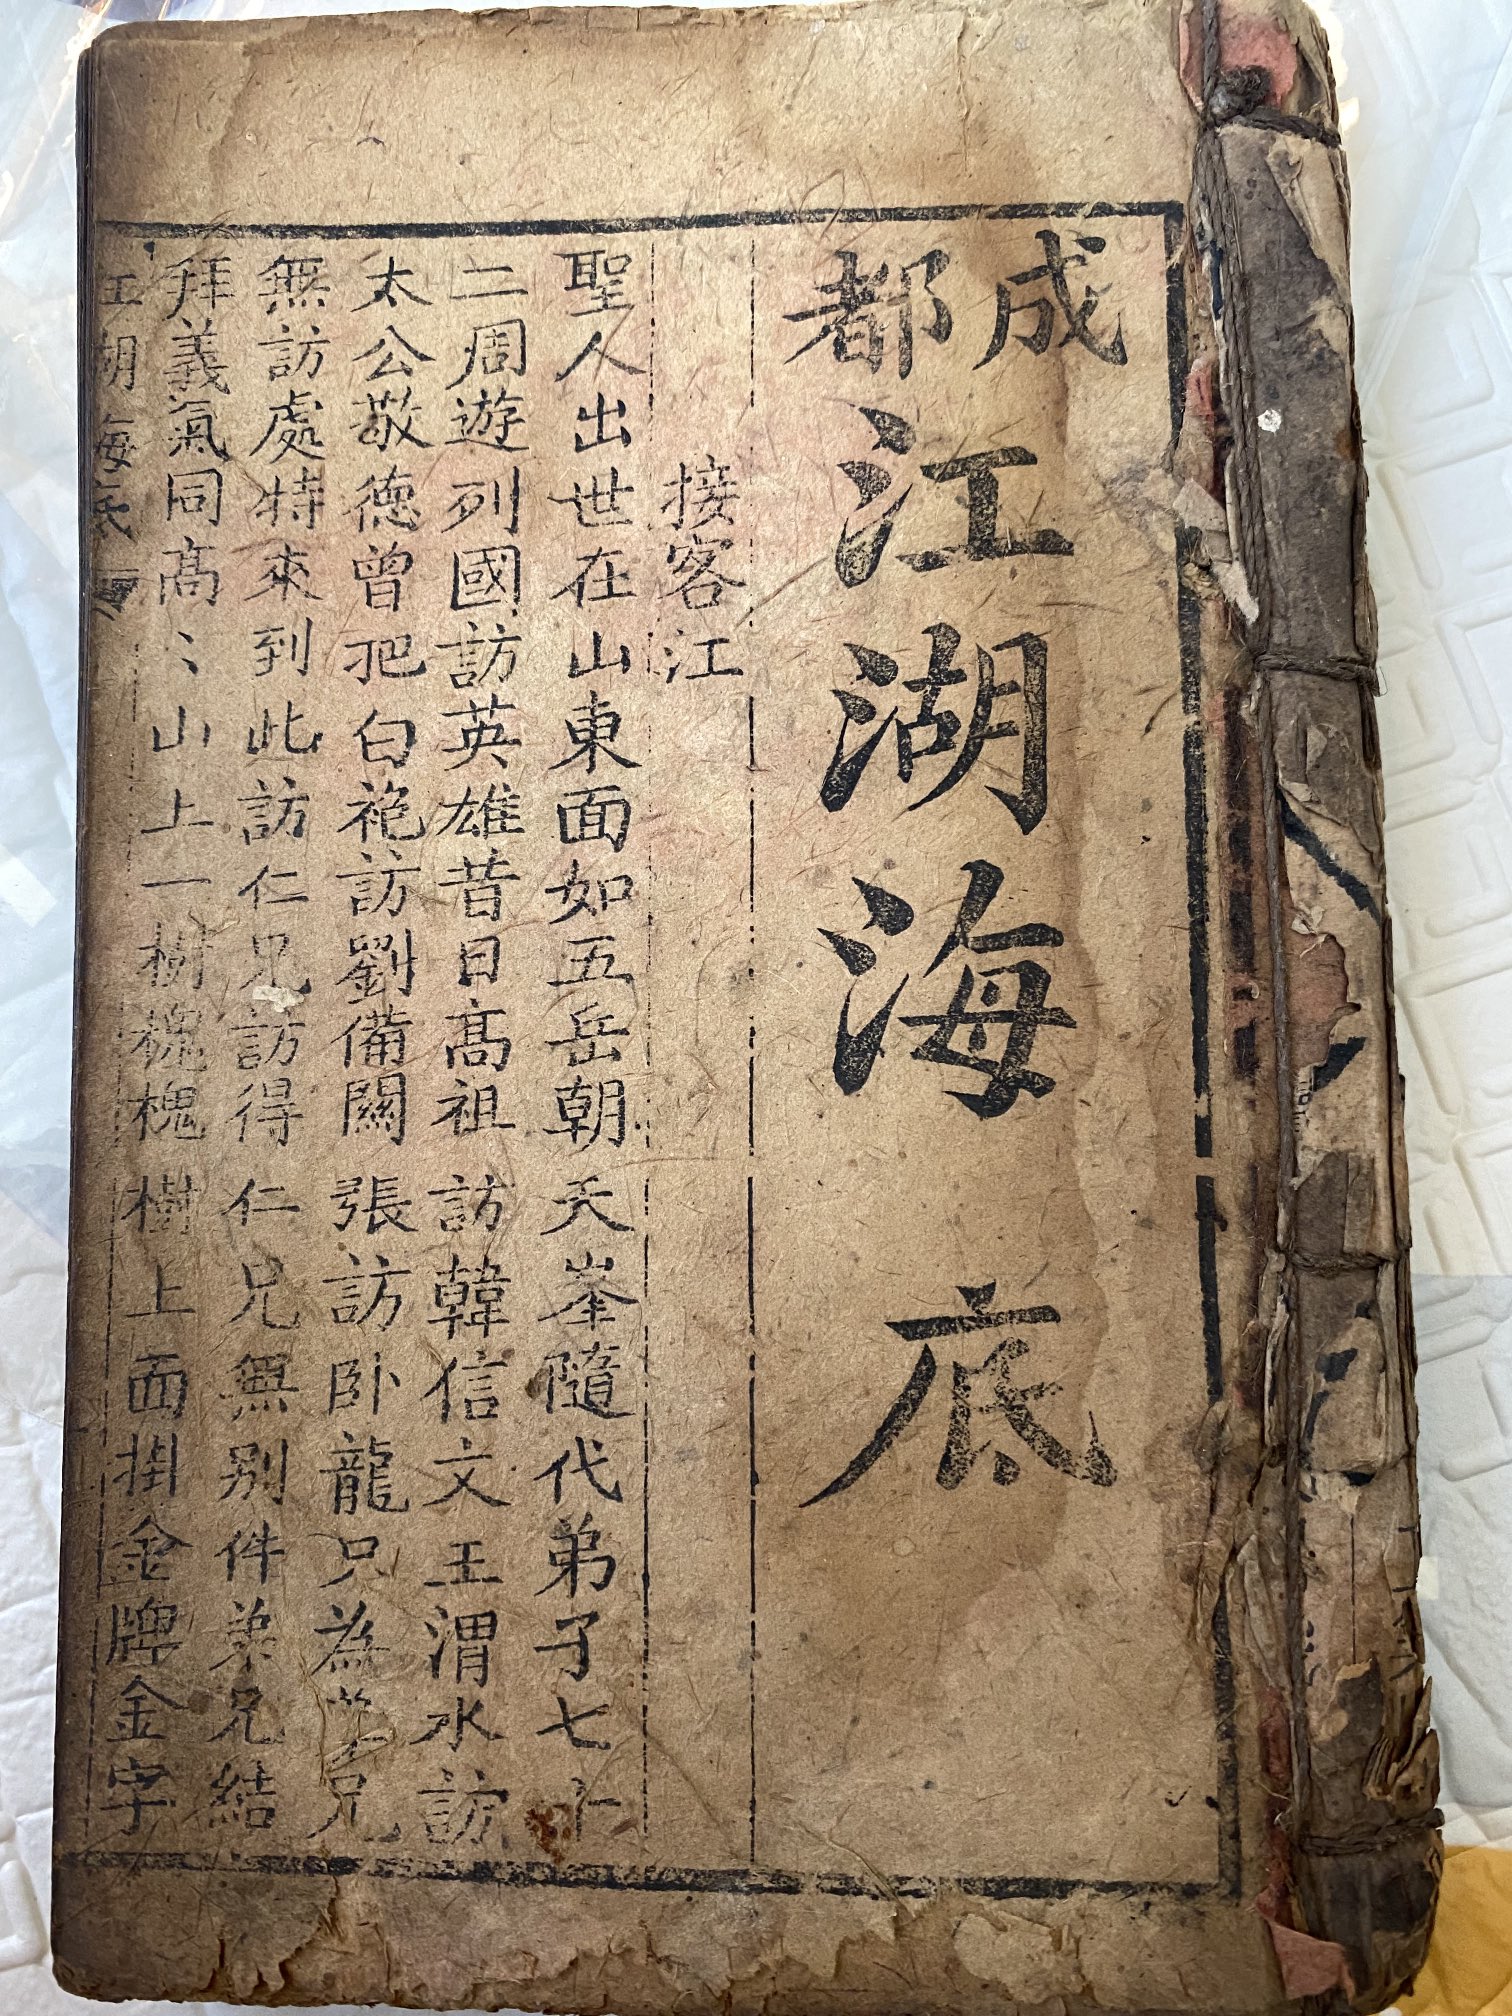 成都
江湖海底
接客江
聖人出世在山東面如五岳朝天峯隨代弟子七十
二周遊列國訪英雄昔日高祖訪韓信文王渭水訪
太公敬德曾把白袍訪劉備關張訪卧龍只為弟兄
無訪處特來到此訪仁兄訪得仁兄無别件弟兄結
拜義氣同高〻山上一樹槐槐樹上面掛金牌金字
江湖海底